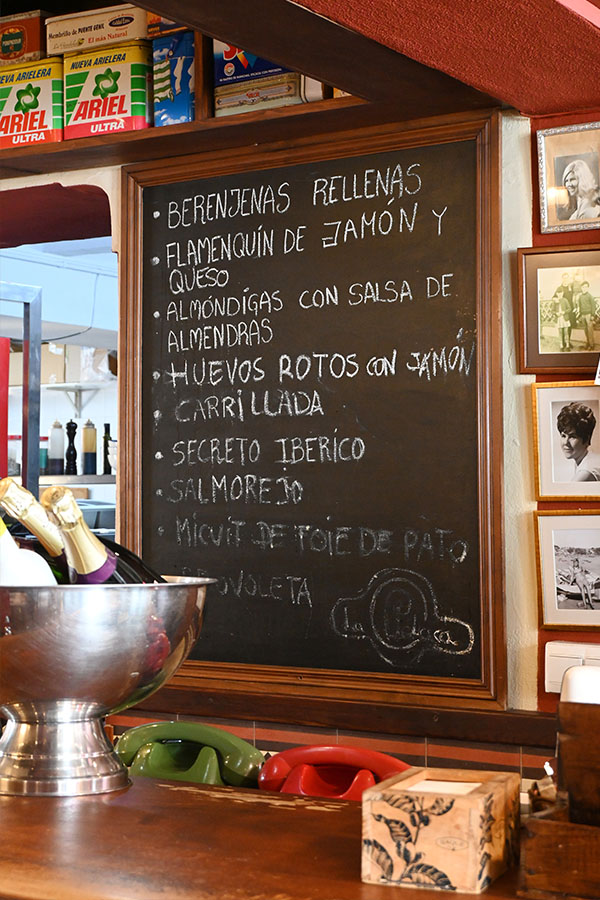 Membrillo de PUENTE GENIL
el más Natural
NUEVA ARIELERA
ARIEL
ULTRA
NUEVA ARIELERA
ARIEL
ULTRA
BERENJENAS RELLENAS
FLAMENQUÍN DE JAMÓN Y
QUESO
ALMÓNDIGAS CON SALSA DE
ALMENDRAS
HUEVOS ROTOS CON JAMÓN
CARRILLADA
SECRETO IBERICO
SALMOREJO
MICUIT DE FOIE DE PATO
PROVOLETA